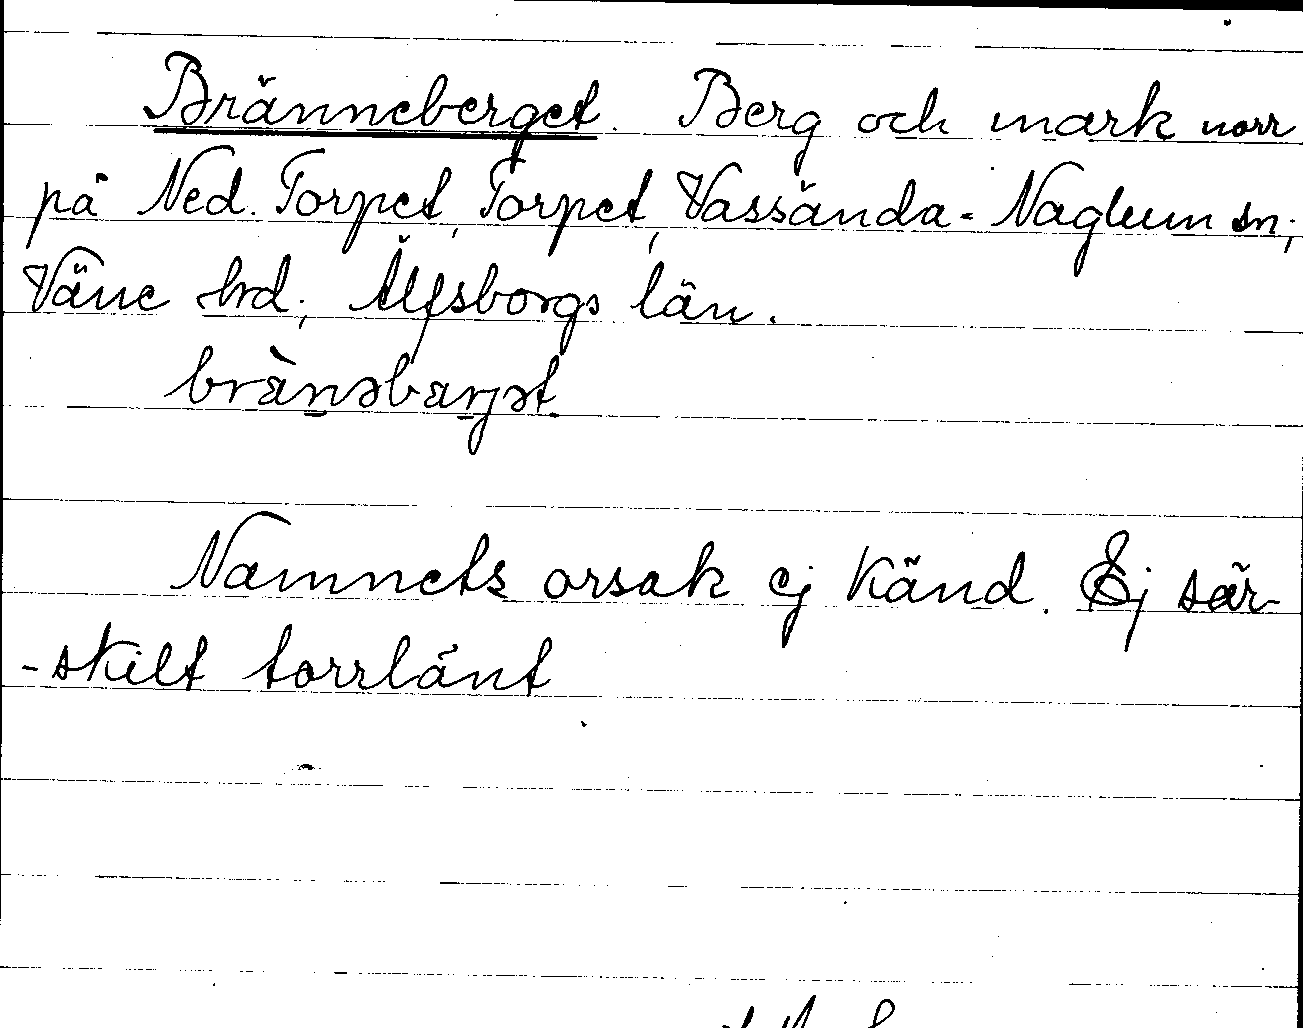 Bränneberget. Berg och mark norr
på Ned. Torpet, Torpet, Vassända-Naglum sn;
Väne hd; Älfsborgs län.
brànəbarjət
Namnets orsak ej känd. Ej sär-
-skilt torrlänt